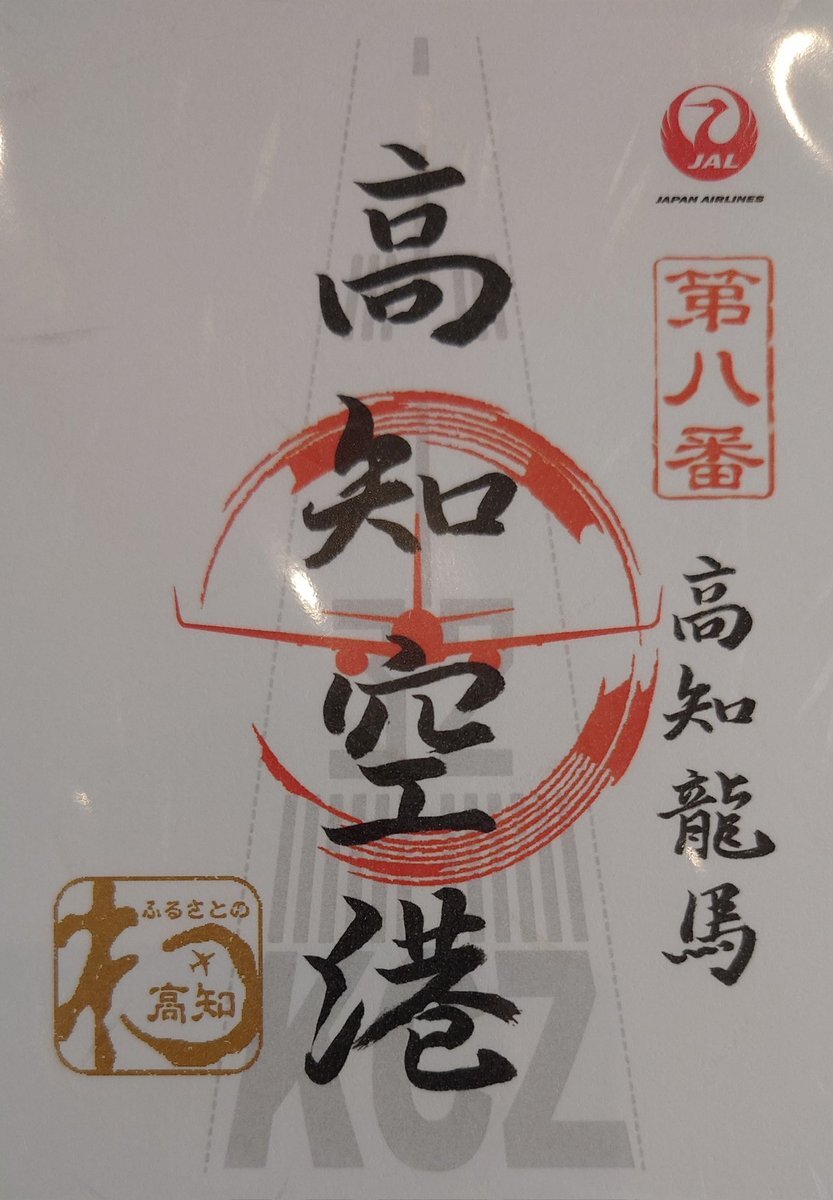 JAL
JAPAN AIRLINES
第八番
高知龍馬
高知空港
ふるさとの
わ
高知
KCZ